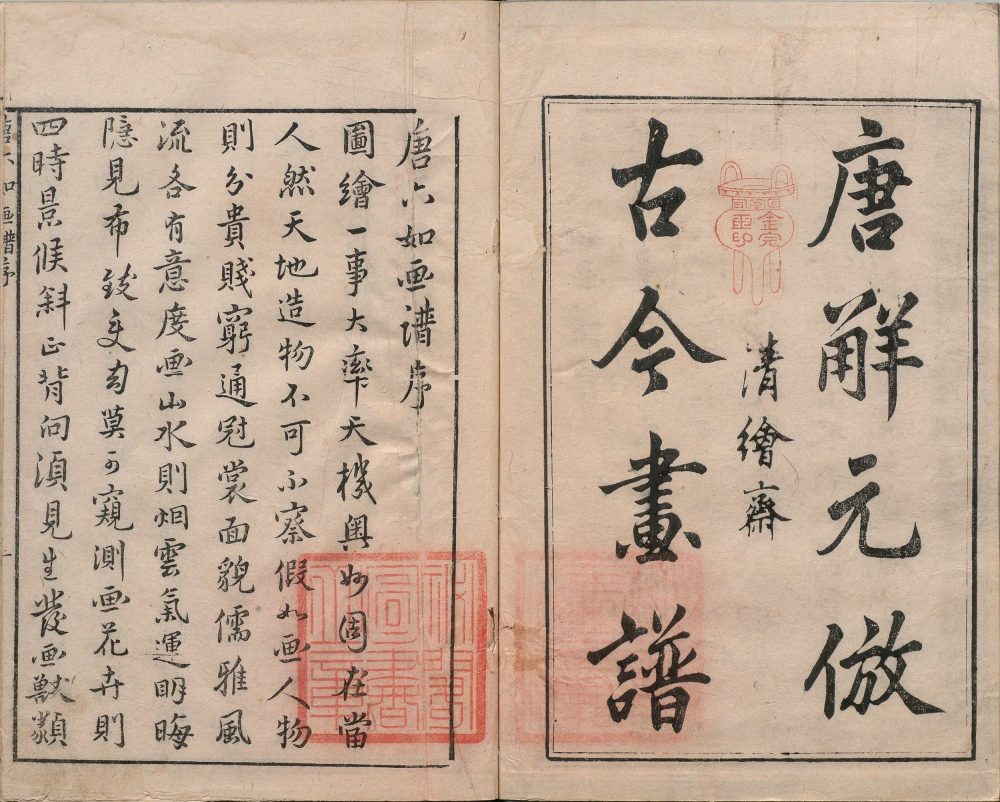 唐觧元倣
清繪齋
古今畫譜
唐六如画譜序
圖繪一事大率天機奧妙固在當
人然天地造物不可不察假如画人物
則分貴賤窮通冠裳面貌儒雅風
流各有意度画山水則烟雲氣運明晦
隱見布致莫可窺測画花卉則
四時景候斜正背向須見生發画獸類
唐六如画譜序
一